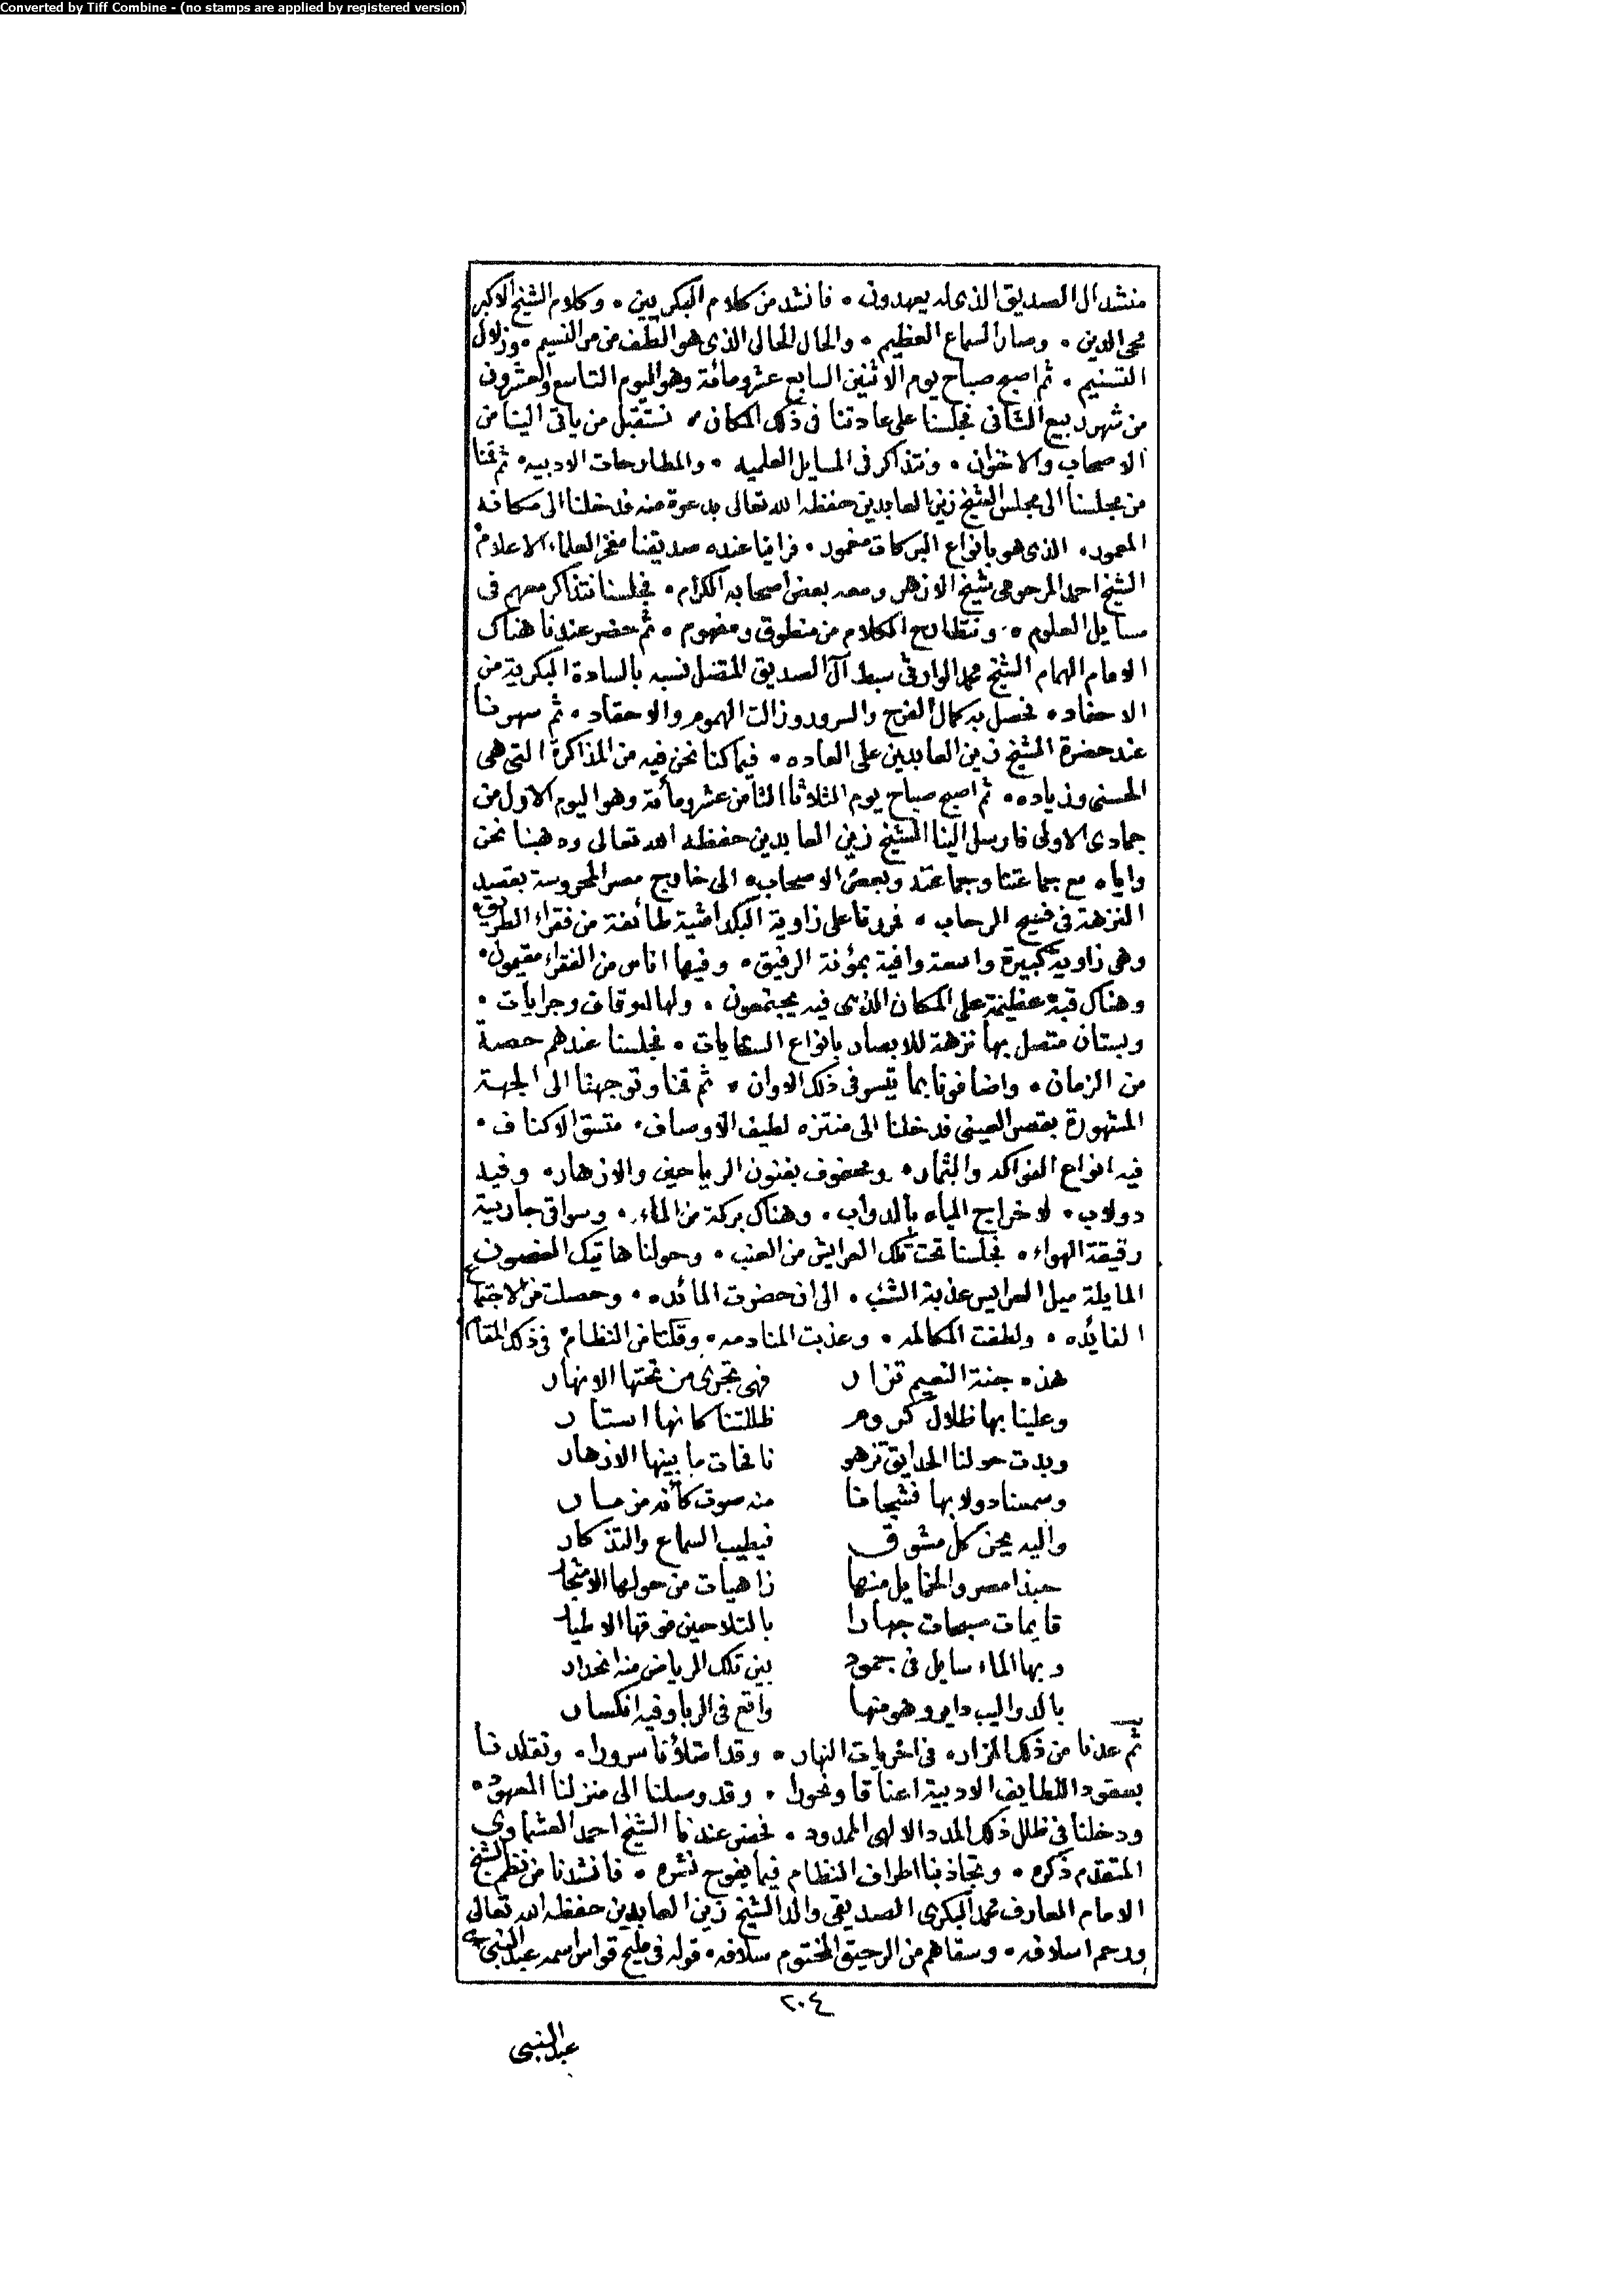 Converted by Tiff Combine - (no stamps are applied by registered version)
منشد ال الصديق الذى له يعهدون • فانشد من كلام البكريين • وكلام الشيخ الاكبر
محى الدين • وصار السماع العظيم • والحال الحالى الذى هو الطف من مر النسيم • وزلال
التسنيم • ثم اصبح صباح يوم الاثنين السابع عشر ومائة وهو اليوم التاسع والعشرون
من شهر ربيع الثانى فجلسنا على عادتنا فى ذلك المكان • نستقبل من ياتى الينا من
الاصحاب والاخوان • ونتذاكر فى المسايل العلميه • والمطارحات الادبيه • ثم قمنا
من مجلسنا الى مجلس الشيخ زين العابدين حفظه الله تعالى بدعوة منه فدخلنا الى مكانه
المعمور • الذى هو بانواع البركات مغمور • فراينا عنده صديقنا مفخر العلماء الاعلام
الشيخ احمد المرحومى شيخ الازهر ومعه بعض اصحابه الكرام • فجلسنا نتذاكر معهم فى
مسايل العلوم • ونتطارح الكلام من منطوق ومفهوم • ثم حضر عندنا هناك
الامام الهمام الشيخ محمد الوارثى سبط آل الصديق المتصل نسبه بالسادة البكرية من
الاحفاد • فحصل به كمال الفرح والسرور وزالت الهموم والاحقاد • ثم سهرنا
عند حضرة الشيخ زين العابدين على العاده • فيما كنا نحن فيه من المذاكرة التى هى
الحسنى وزياده • ثم اصبح صباح يوم الثلاثا الثامن عشر ومائة وهو اليوم الاول من
جمادى الاولى فارسل الينا الشيخ زين العابدين حفظه الله تعالى وذهبنا نحن
واياه مع جماعتنا وجماعته وبعض الاصحاب • الى خارج مصر المحروسة بقصد
النزهة فى فسيح الرحاب • فمررنا على زاوية البكداشية طائفة من فقراء الطريق
وهى زاوية كبيرة واسعة وافية بمؤنة الرفيق • وفيها اناس من الفقراء مقيمون •
وهناك قبة عظيمة على المكان الذى فيه يجتمعون • ولها اوقاف وجرايات •
وبستان متصل بها نزهة للابصار بانواع السقايات • فجلسنا عندهم حصة
من الزمان • واضافونا بما تيسر فى ذلك الاوان • ثم قمنا وتوجهنا الى الجهة
المشهورة بقصر العينى فدخلنا الى منتزه لطيف الاوصاف • متسق الاكناف •
فيه انواع الفواكه والثمار • ومحفوف بفنون الرياحين والازهار • وفيه
دولاب • لاخراج المياه بالدواب • وهناك بركة من الماء • وسواقى جارية
رقيقة الهواء • فجلسنا تحت تلك العرايش من العنب • وحولنا هاتيك الغصون
المايلة ميل العرايس عذبة الشنب • الى ان حضرت المائده • وحصلت من الاجتماع
الفائده • ولطفت المكالمه • وعذبت المنادمه • وقلنا من النظام فى ذلك المقام
هذه جنة النعيم تزار فهى تجرى من تحتها الانهار
وعلينا بها ظلال كروم ظللتنا كانها استار
وبدت حولنا الحدايق تزهو نافحات ما بينها الازهار
وسمعنا دولابها فشجانا منه صوت كأنه مزمار
واليه يحن كل مشوق فيطيب السماع والتذكار
حبذا مصر والخمايل منها زاهيات من حولها الاشجار
قايمات مسبحات جهارا بالتلاحين فوقها الاطيار
وبها الماء سايل فى جمود بين تلك الرياض منه انحدار
بالدواليب داير وهو منها واقع فى الربا وفيه انكسار
ثم عدنا من ذلك المزار • فى اخريات النهار • وقد امتلأنا سرورا • وتقلدنا
بعقود اللطايف الادبية اعناقا ونحورا • وقد وصلنا الى منزلنا المعهود •
ودخلنا فى ظلل ذلك المدد الالهى الممدود • فحضر عندنا الشيخ احمد العشماوى
المتقدم ذكره • وتجاذبنا اطراف النظام فيما يفوح نشره • فانشدنا من نظم الشيخ
الامام العارف محمد البكرى الصديقى والد الشيخ زين العابدين حفظه الله تعالى
ورحم اسلافه • وسقاهم من الرحيق المختوم سلافه • قوله فى مليح قواس اسمه عبد النبى
٢٠٤
عبد النبى